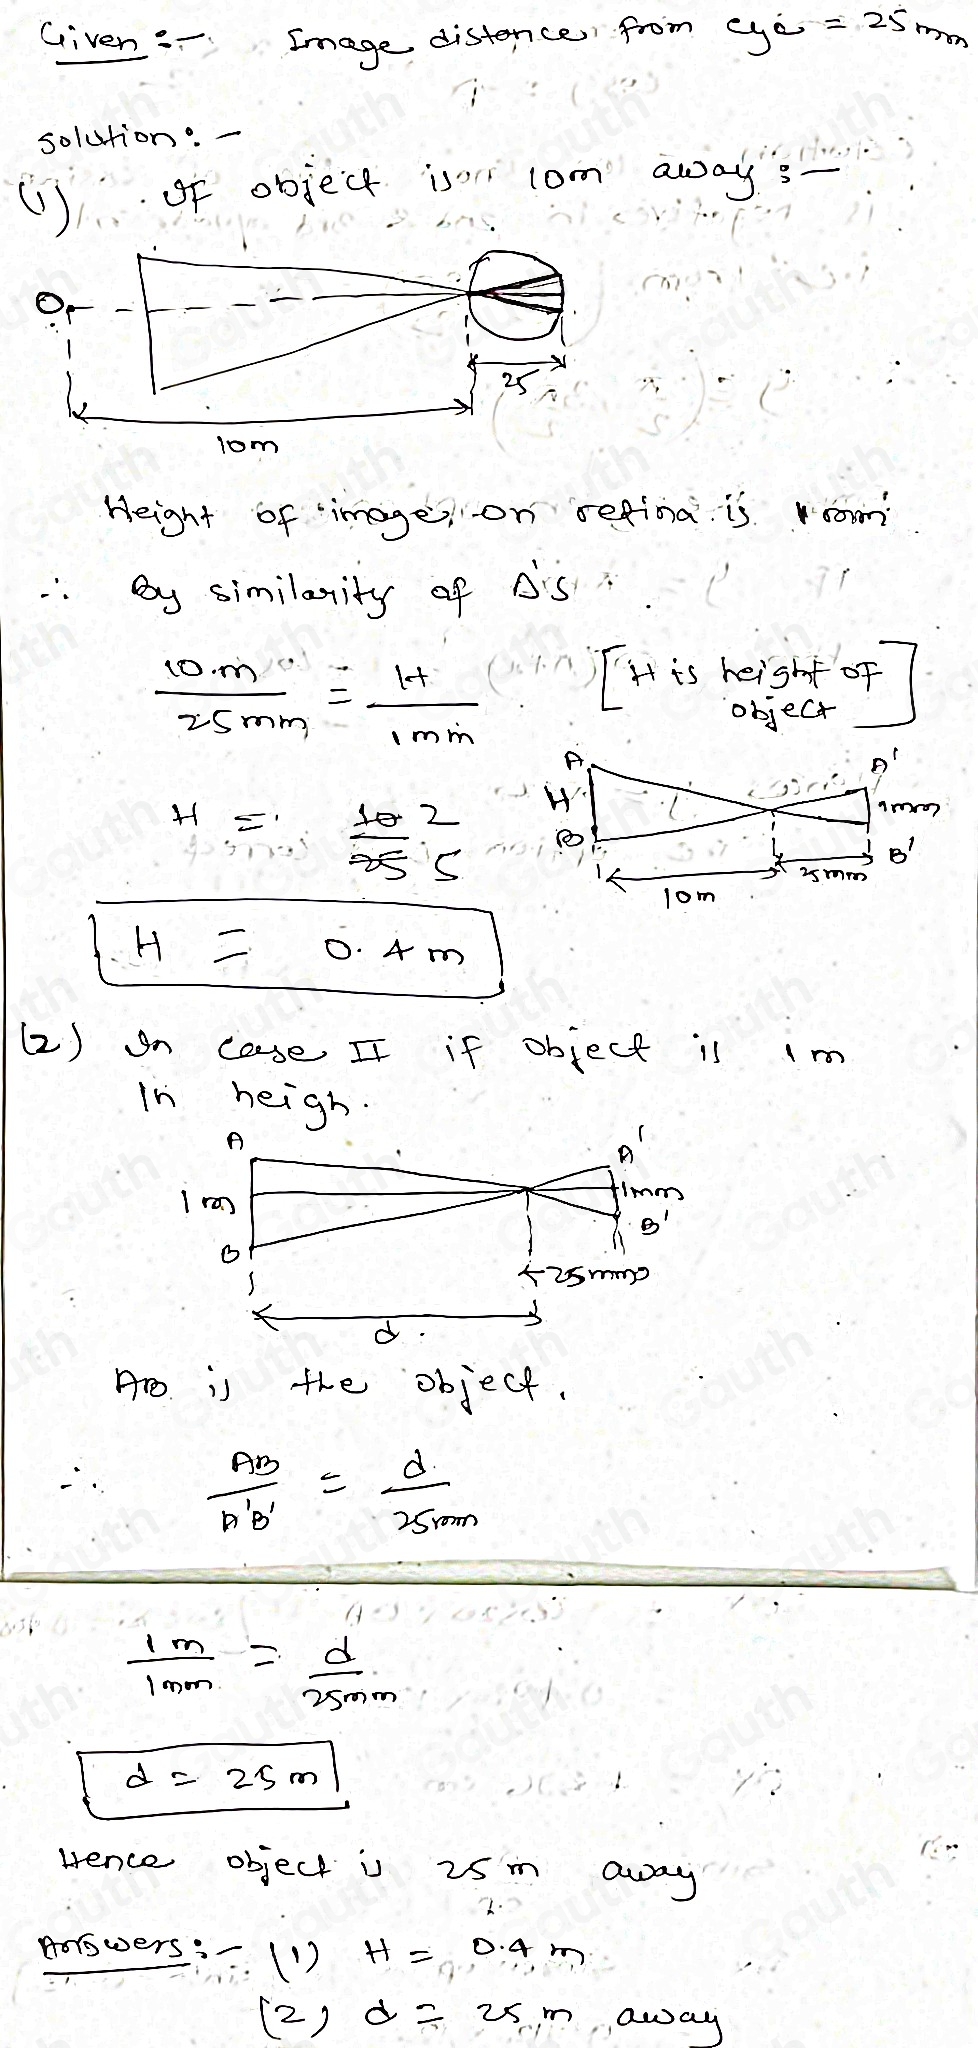 Given :- Image distance from eye = 25mm
solution :-
(1) If object is 10m away :-
O
25
10m
Height of image on retina is 1mm
∴ By similarity of Δ's
10m/25mm = H/1mm [H is height of object]
A A'
H 1mm
B B'
10m 25mm
H = 10/25 2/5
H = 0.4m
(2) In case II if object is 1m
in heigh.
A A'
1m 1mm
B B'
25mm
d
AB is the object.
∴ AB/A'B' = d/25mm
1m/1mm = d/25mm
d = 25m
Hence object is 25m away
Answers :- (1) H = 0.4m
(2) d = 25m away